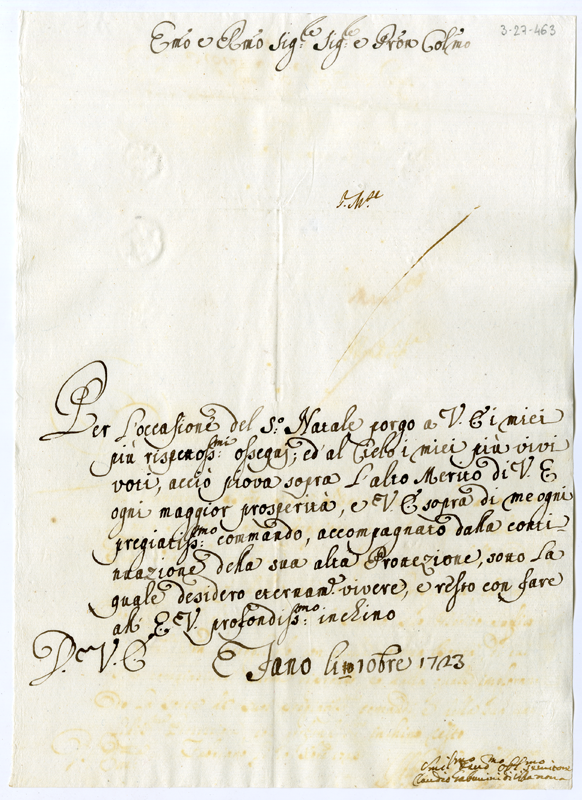 3-27-463
Emo e Rmo Sig.re Sig.re e Pron Colmo
Per l'occasione del S.o Natale porgo a V. E i miei
più rispettoss.mi ossequj; ed al Cielo i miei più vivi
voti, acciò piova sopra l'alto Merito di V. E
ogni maggior prosperità, e V. E sopra di me ogni
pregiatiss.mo commando, accompagnato dalla conti-
nuazione della sua alta Protezione, sotto la
quale desidero eternam.e vivere, e resto con fare
all' E. V. profondiss.mo inchino
D. V. E Fano li 10bre 1723
Umil.mo Dev.mo Obl.mo Servitore
Claudio